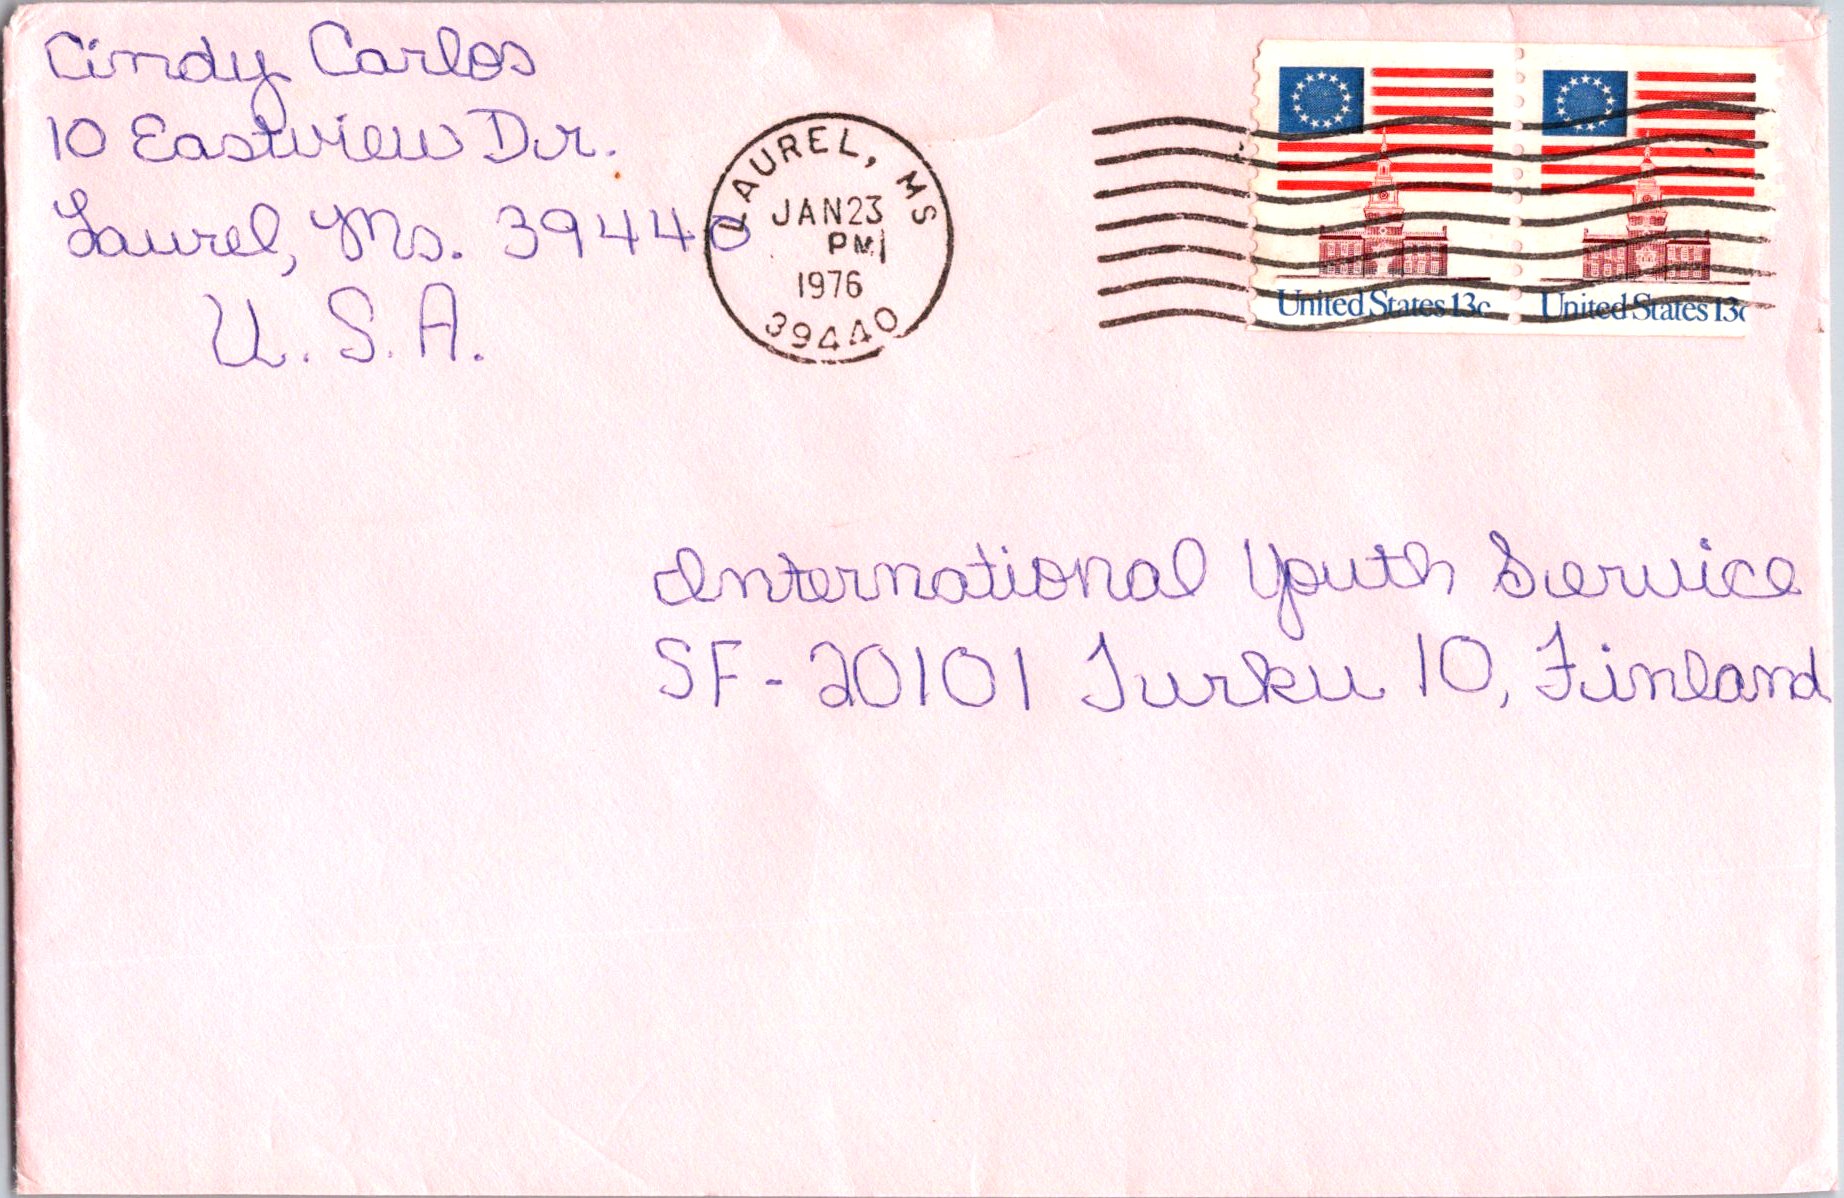 Cindy Carlos
10 Eastview Dr.
Laurel, Ms. 39440
U.S.A.
LAUREL, MS
JAN 23
PM
1976
39440
United States 13c
United States 13c
International Youth Service
SF-20101 Turku 10, Finland